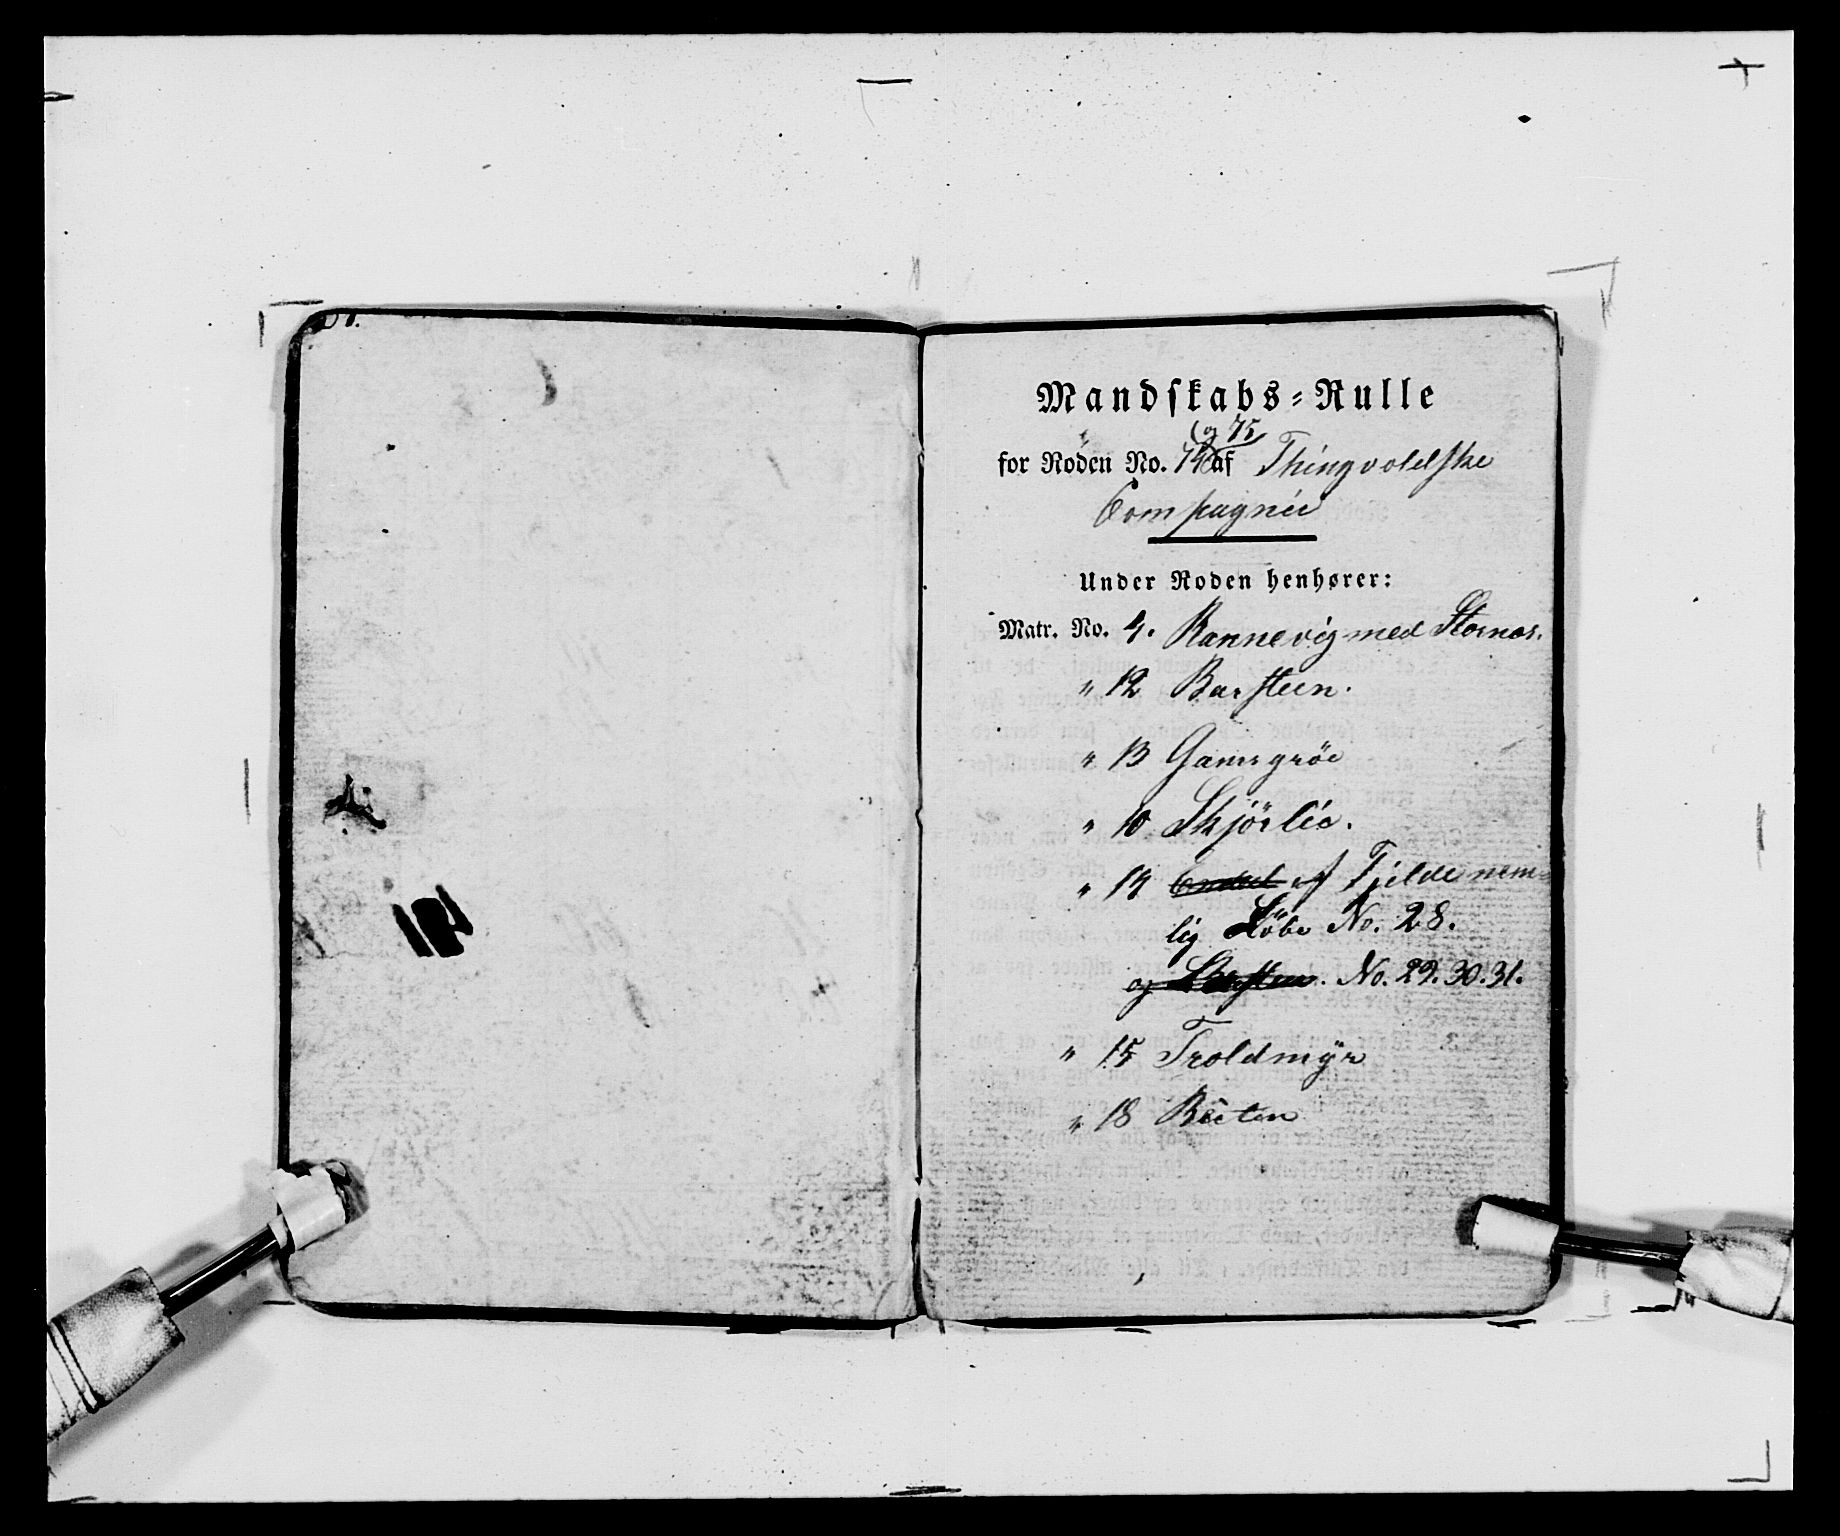 Mandskabs-Rulle
(og 75)
for Roden No. 74 af Thingvoldske
Compagnie
Under Roden henhører:
Matr. No. 4. Rannevig med Stornæs.
" 12 Barsteen.
" 13 Gamsgröe
" 10 Skjörlie.
" 14 Endeel af Fjelde nem-
lig Löbe No. 28.
og No. 29. 30. 31.
" 15 Troldmÿr
" 18 Reiten